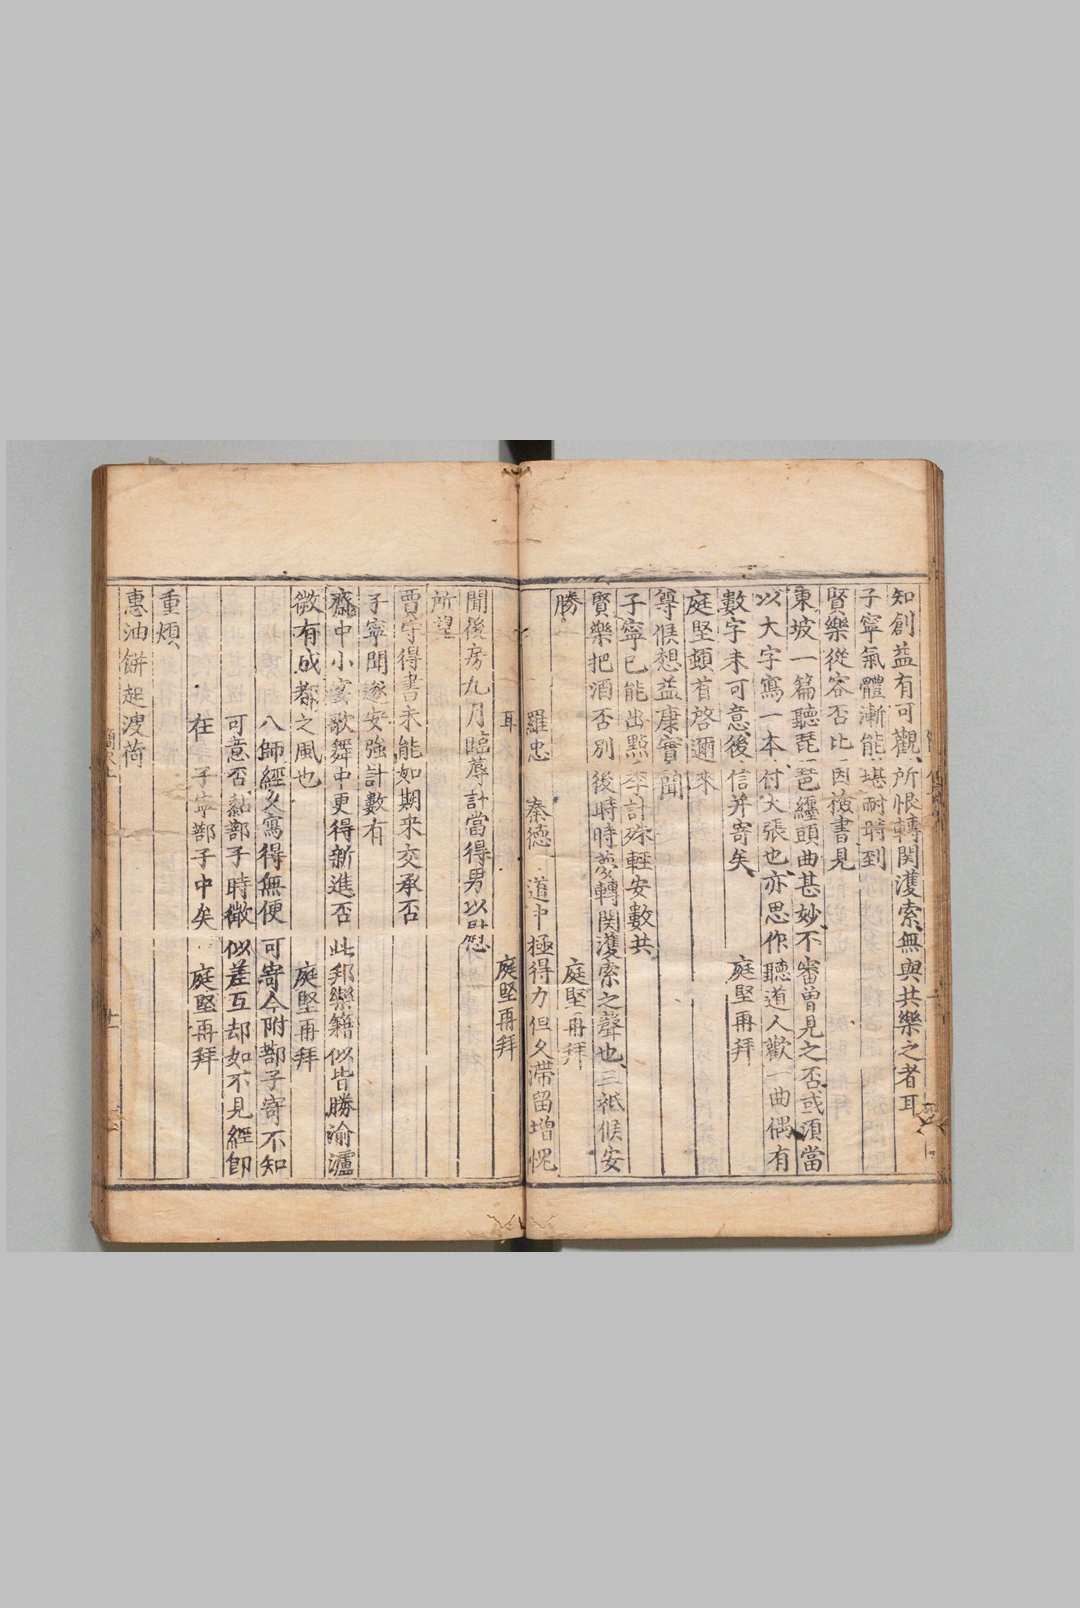 知創益有可觀所恨轉関濩索無與共樂之者耳
子寧氣體漸能堪耐時到
賢樂從容否比因檢書見
東坡一篇聽琵琶纏頭曲甚妙不審曽見之否或須當
以大字寫一本付大張也亦思作聽道人歡一曲偶有
數字未可意後信并寄矣 庭堅再拜
庭堅頓首啓邇来
尊候想益康寕聞
子寧已能出點李計殊輕安數共
賢樂把酒否別後時時夢轉関濩索之聲也三祗候安
勝 庭堅再拜
羅忠 秦德 道中極得力但久滯留增愧
耳 庭堅再拜
聞後房九月臨蓐計當得男以慰
所望
賈守得書未能如期来交承否
子寧聞遂安強計數有
齋中小宴歌舞中更得新進否 此邦樂籍似皆勝渝瀘
微有成都之風也 庭堅再拜
八師經久寫得無便可寄今附鄯子寄不知
可意否黏鄯子時微似差互却如不見經即
在子寧鄯子中矣 庭堅再拜
重煩
惠油餅起溲荷